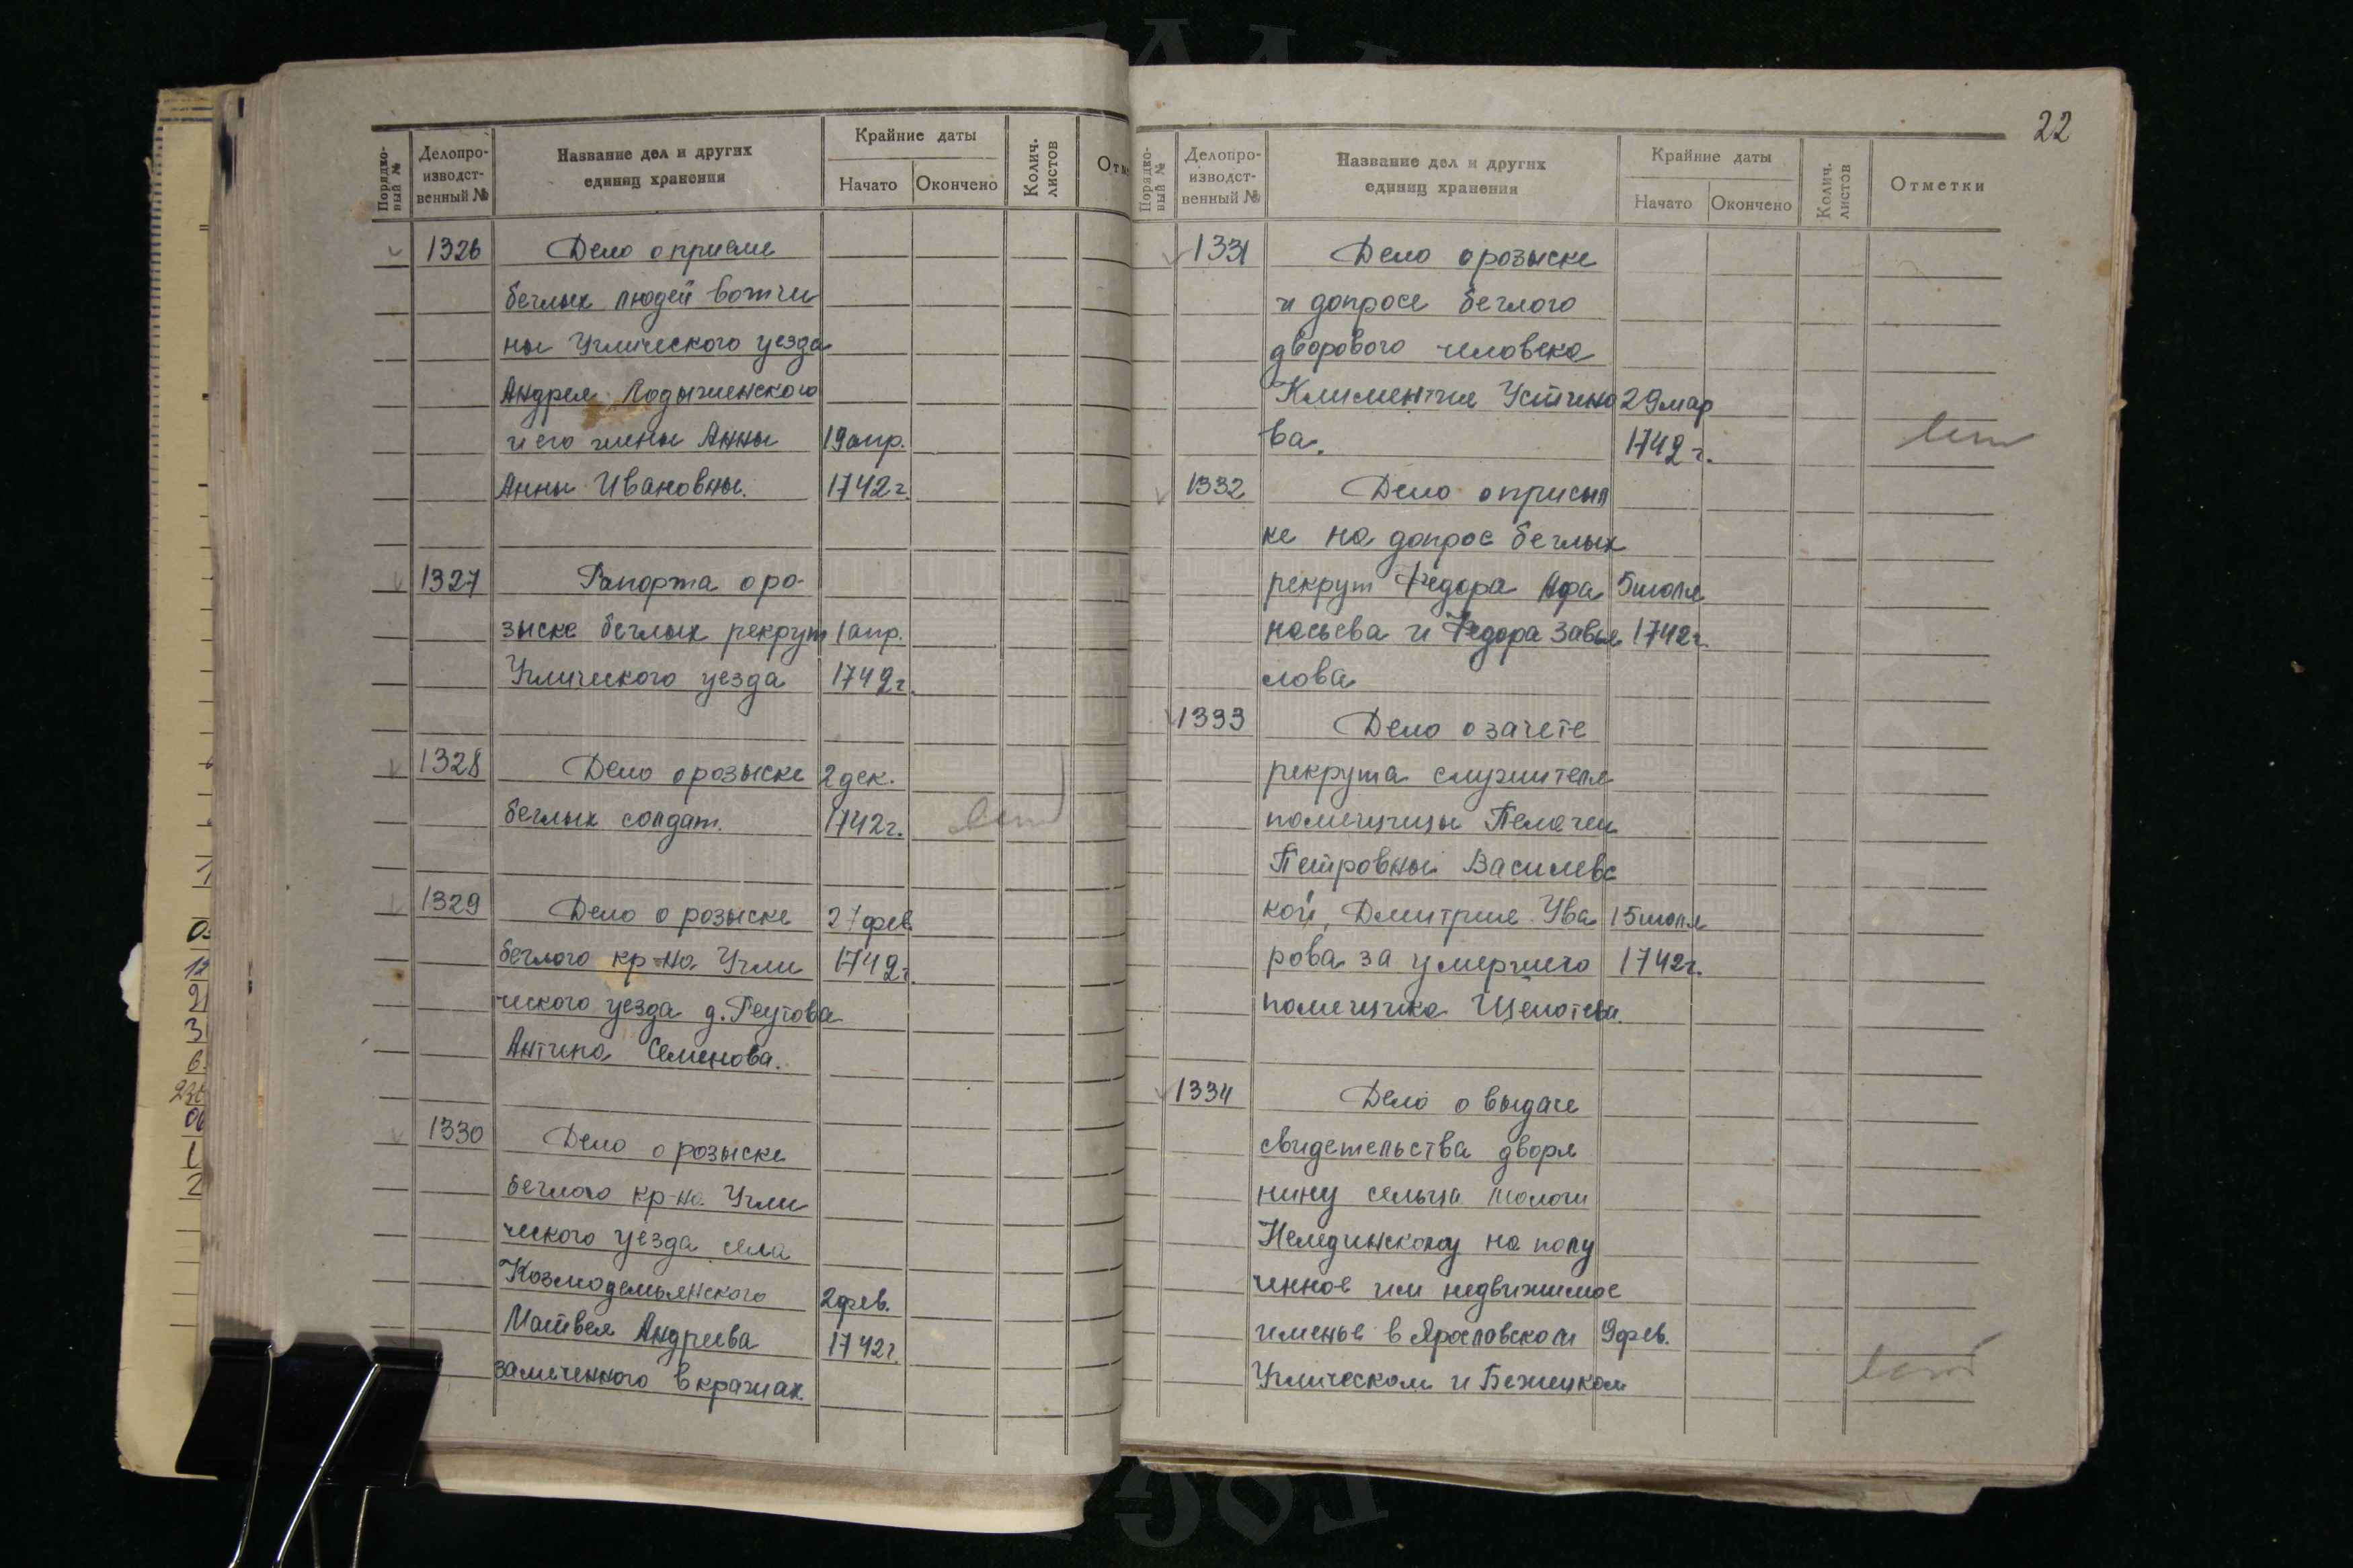 Порядко-
вый №
Делопро-
изводст-
венный №
Название дел и других
единиц хранения
Крайние даты
Начато
Окончено
Колич.
листов
1326 Дело о приеме
беглых людей вотчи
ны Угличского уезда
Андрея Лодыженского
и его жены Анны 19 апр.
Анны Ивановны. 1742 г.
1327 Рапорта о ро-
зыске беглых рекрут 1 апр.
Угличского уезда 1742 г.
1328 Дело о розыске 2 дек.
беглых солдат. 1742 г.
1329 Дело о розыске фев.
беглого кр-на Угли 1742 г.
ческого уезда д. Реутова
Антипа Семенова.
1330 Дело о розыске
беглого кр-на Угли
ческого уезда села
Козмодемьянского 2 фев.
Матвея Андреева 1742 г.
замеченного в кражах
22
Порядко-
вый №
Делопро-
изводст-
венный №
Название дел и других
единиц хранения
Крайние даты
Начато
Окончено
Колич.
листов
Отметки
1331 Дело о розыске
и допросе беглого
дворового человека
Климентия Устино 29 мар
ва. 1742 г.
1332 Дело о присыл
ке на допрос беглых
рекрут Федора Афа 5 июля
насьева и Федора Завья 1742 г.
лова
1333 Дело о зачете
рекрута служителя
помещицы Пелагеи
Петровны Василевс
кой, Дмитрия Ува 15 июля
рова за умершего 1742 г.
помещика Щепотева.
1334 Дело о выдаче
свидетельства дворя
нину сельца
Нелединскому на полу
ченное им недвижимое
именье в Ярославском 9 фев.
Угличском и Бежецком